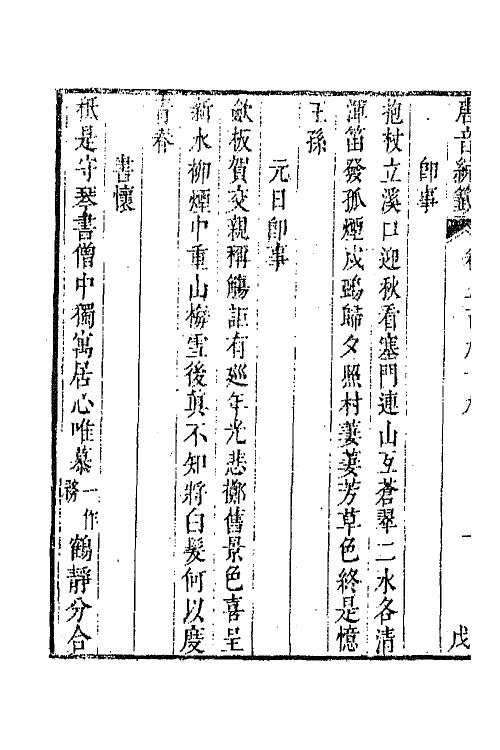 唐音統籤 戊
卽事
抱杖立溪口迎秋看塞門連山互蒼翠二水各清
渾笛發孤煙戍鴉歸夕照村萋萋芳草色終是憶
王孫
元日卽事
斂板賀交親稱觴詎有巡年光悲擲舊景色喜呈
新水柳煙中重山梅雪後真不知將白髮何以度
青春
書懷
秖是守琴書僧中獨寓居心唯慕一作務鶴靜分合